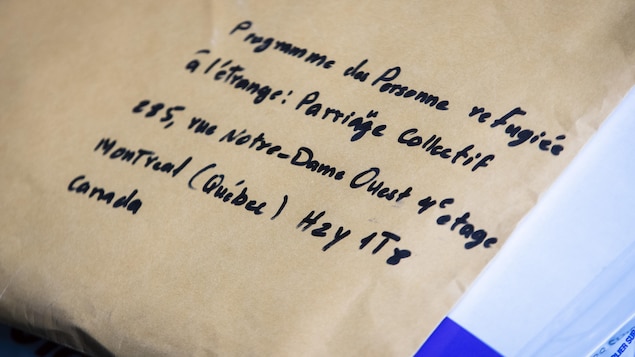 Programme du Personne refugiée
à l'étrange: Parriage Collectif
285, rue Notre-Dame Ouest 4e étage
Montreal (Québec) H2Y 1T8
Canada